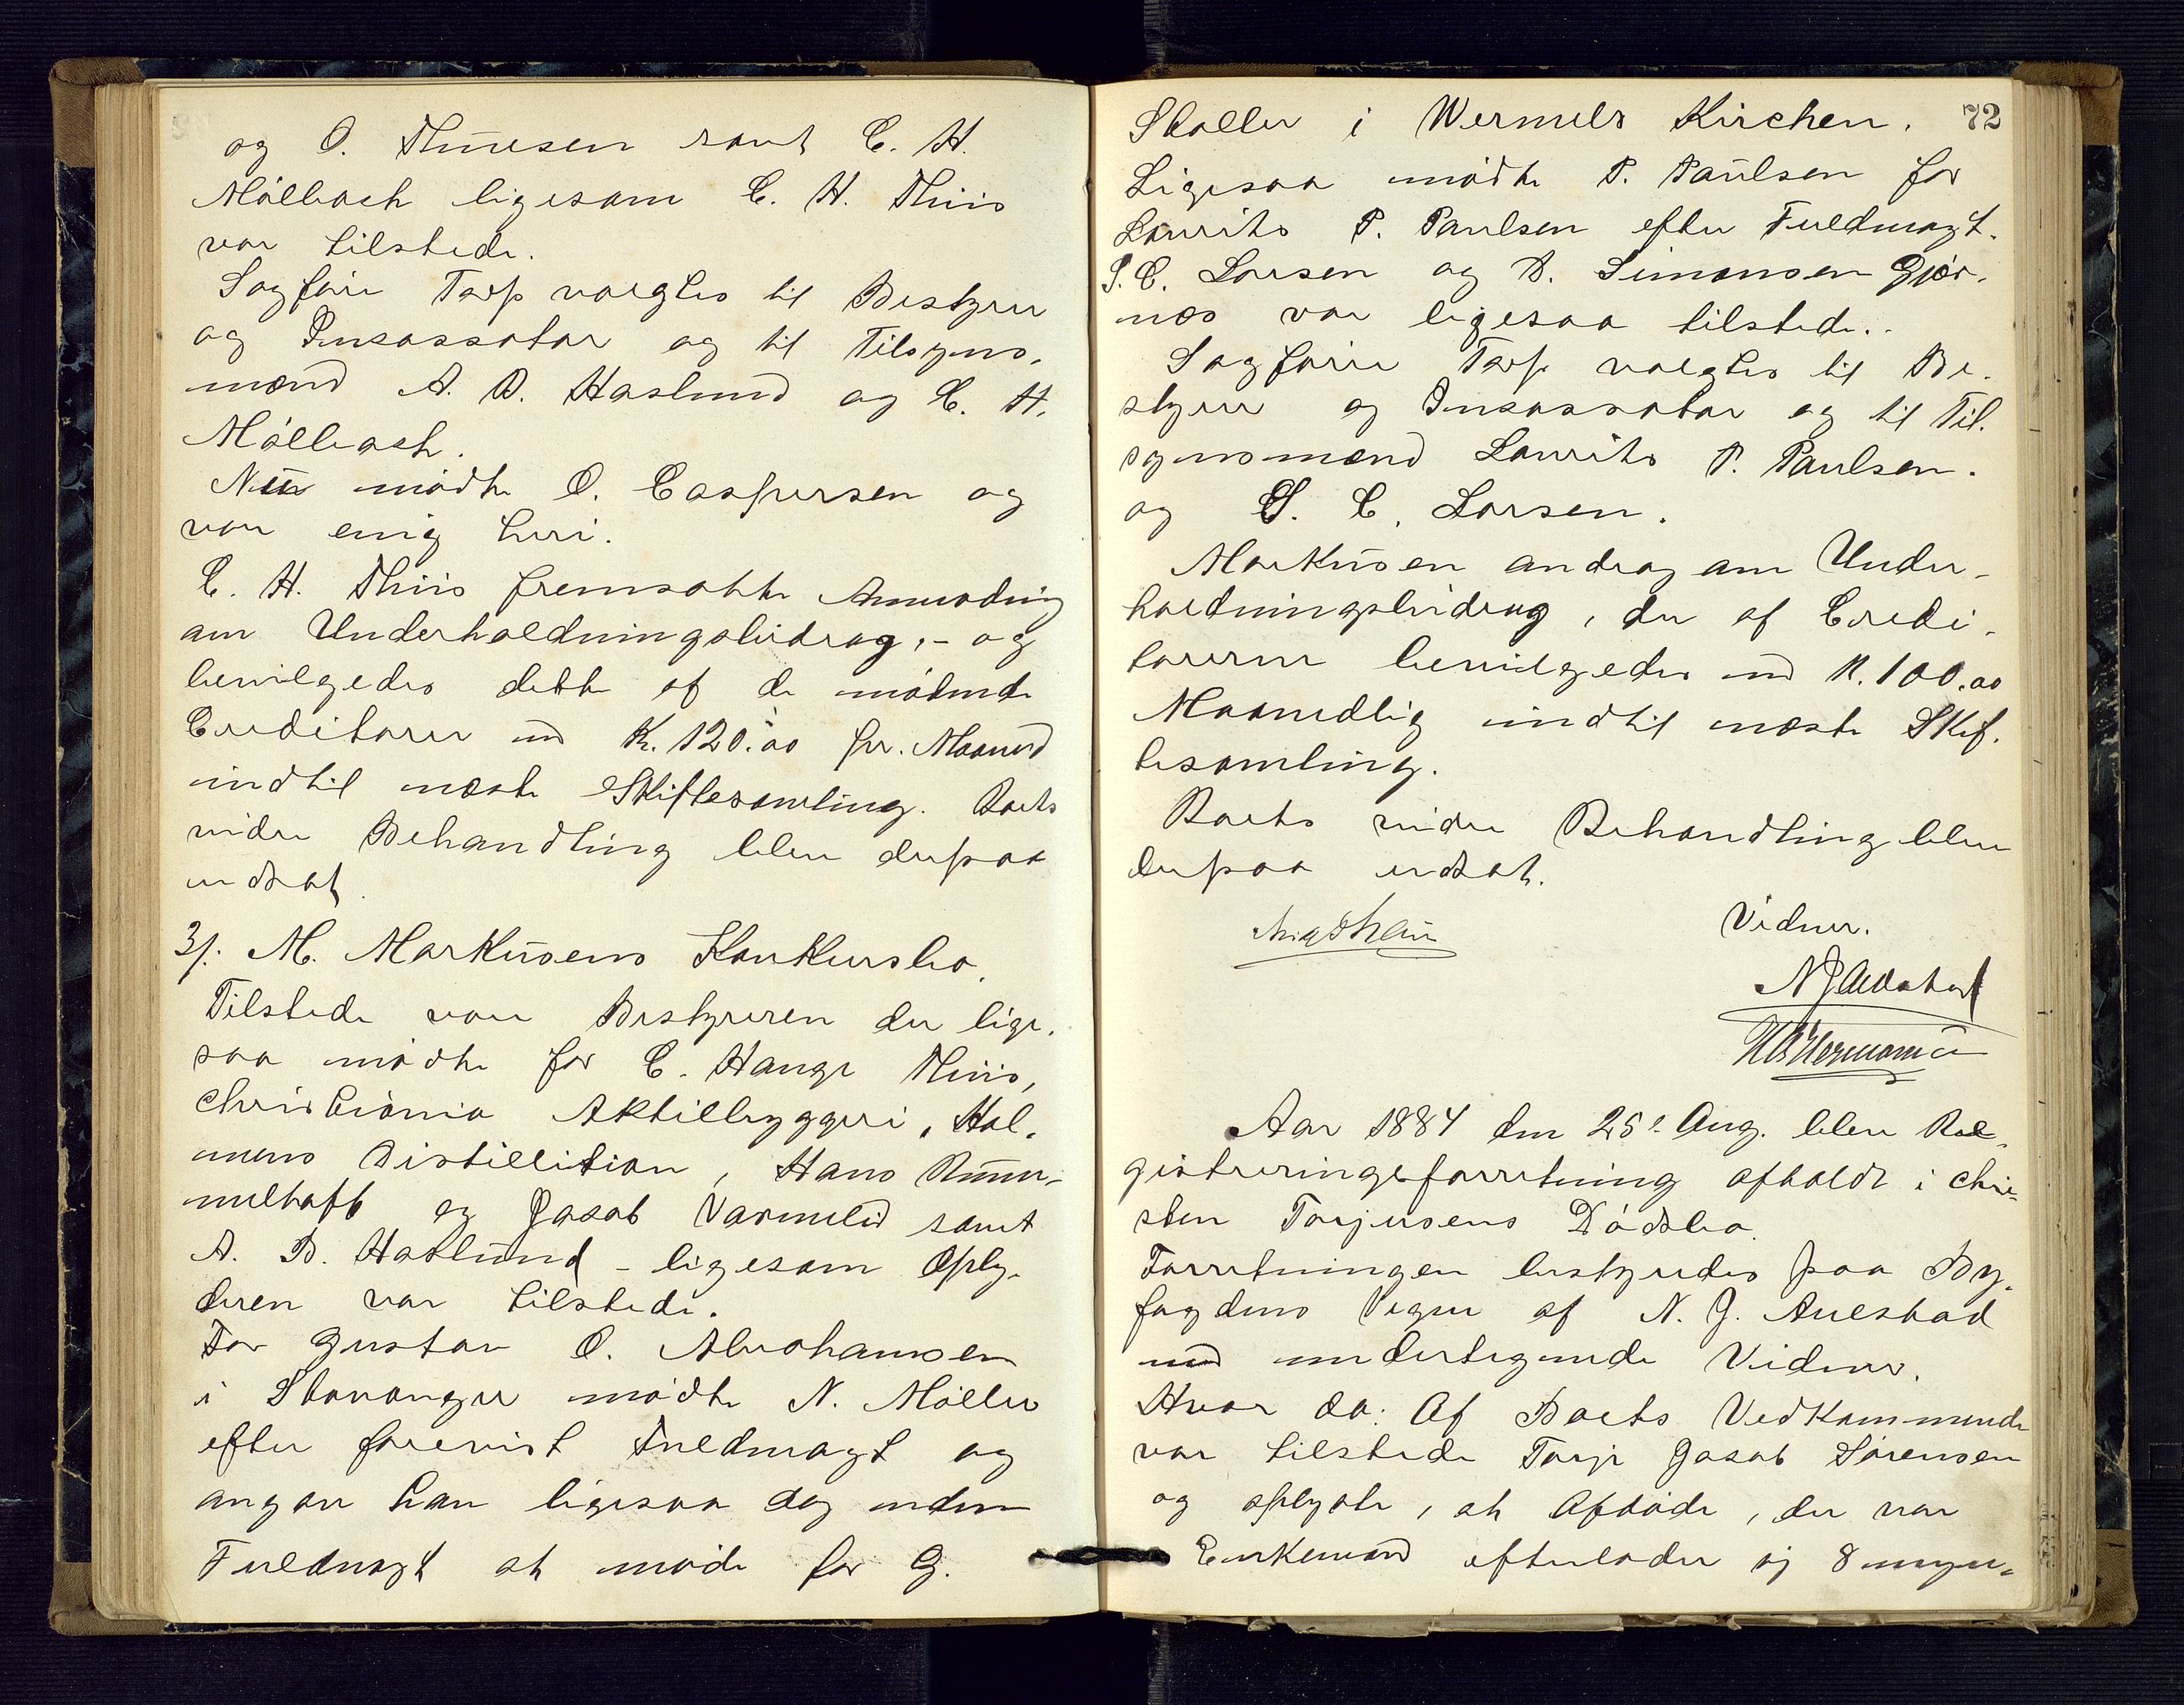 og O. Thuesen samt C. H.
Møllbach ligesom C. H. Thiis
var tilstede.
Sagfører Tarp valgtes til Bestyrer
og Incassator og til Tilsyns-
mænd A. B. Haslund og C. H.
Møllbach.
Nu mødte O. Caspersen og
var enig heri.
C. H. Thiis fremsatte Anmodning
om Underholdningsbidrag, – og
bevilgedes dette af de mødende
Creditorer med K. 120.00 pr. Maaned
indtil næste Skiftesamling. Boets
videre Behandling blev derpaa
udsat.
3/. M. Markusens Konkursbo.
Tilstede var Bestyreren der lige-
saa mødte for C. Hauge Thiis,
Christiania Aktiebryggeri, Hol-
mens Distillition, Hans Rum-
melhoff og Jacob Varmelid samt
A. B. Haslund – ligesom Oply-
deren var tilstede.
For Gustav O. Abrahamsen
i Stavanger mødte N. Møller
efter forevist Fuldmagt og
angav han ligesaa dog uden
Fuldmagt at møde for G.
72
Skaller i Wermels Kirchen.
Ligesaa mødte P. Paulsen for
Laurits P. Paulsen efter Fuldmagt.
S. C. Larsen og B. Simonsen Gjær-
næs var ligesaa tilstede.
Sagfører Tarp valgtes til Be-
styrer og Incassator og til Til-
synsmænd Laurits P. Paulsen.
og S. C. Larsen.
Markusen androg om Under-
holdningsbidrag, der af Credi-
torerne bevilgedes med K. 100.00
Maanedlig indtil næste Skif-
tesamling.
Boets videre Behandling blev
derpaa udsat.
Vidner.
N J Auestad
Aar 1884 den 25d. Aug. blev Re-
gistreringsforretning afholdt i Chri-
sten Torjusens Dødsbo.
Forretningen bestyredes paa By-
fogdens Vegne af N. J. Auestad
med undertegnede Vidner.
Hvor da: Af Boets Vedkommende
var tilstede Torje Jacob Sørensen
og oplyste, at Afdøde, der var
Enkemand efterlader sig 8 myn-